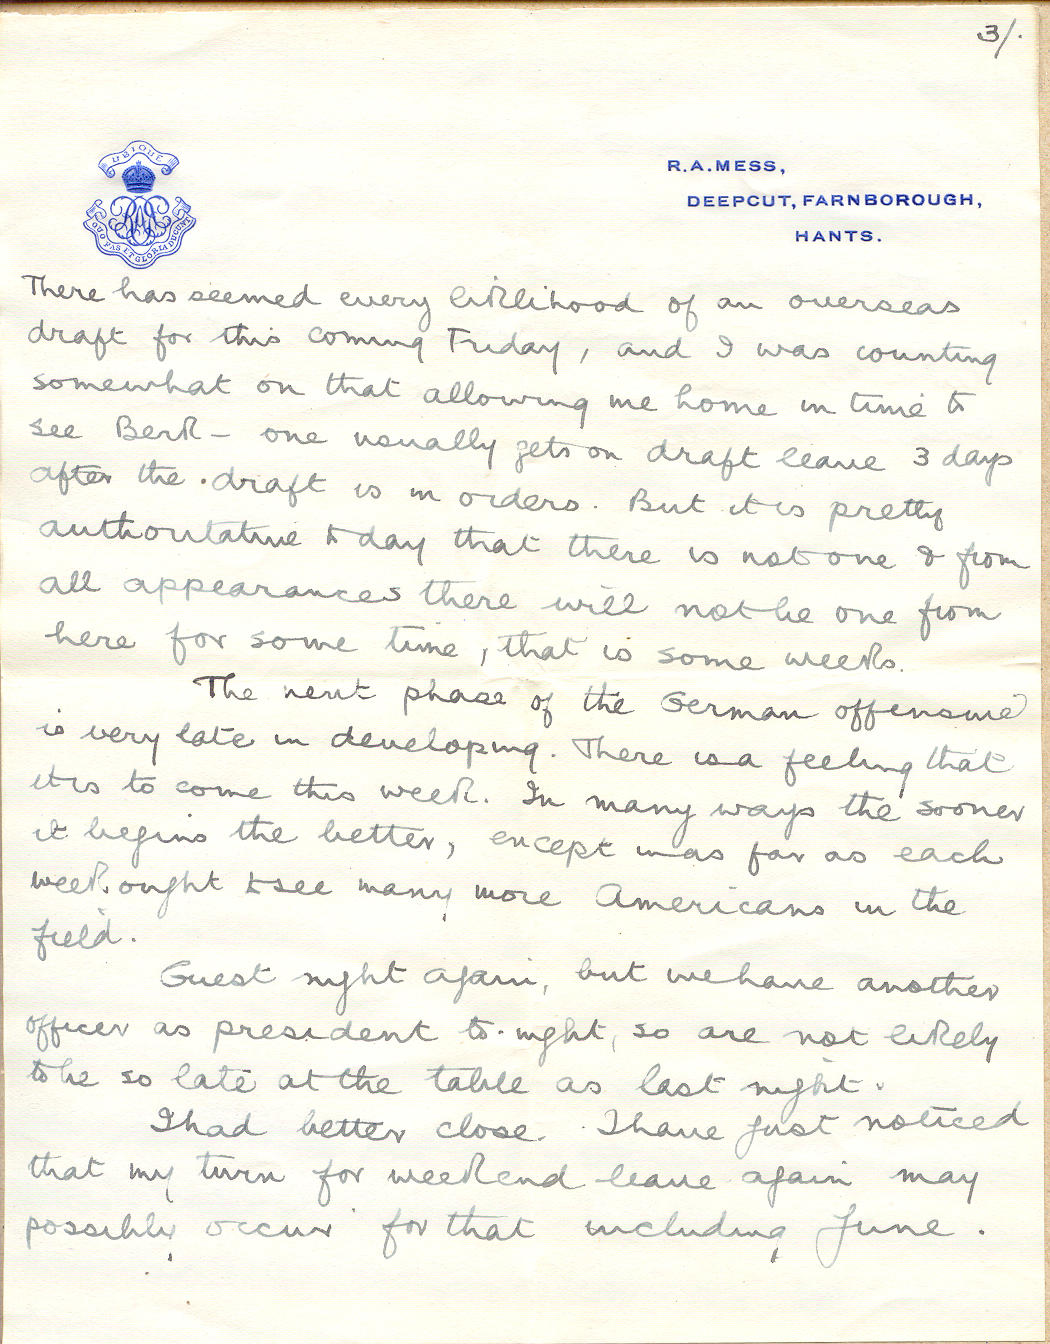 3/.
UBIQUE
QUO FAS ET GLORIA DUCUNT
R.A. MESS,
DEEPCUT, FARNBOROUGH,
HANTS.
There has seemed every liklihood of an overseas
draft for this coming Friday, and I was counting
somewhat on that allowing me home in time to
see Berk – one usually gets on draft leave 3 days
after the draft is in orders. But it is pretty
authoritative to day that there is not one & from
all appearances there will not be one from
here for some time, that is some weeks.
The next phase of the German offensive
is very late in developing. There is a feeling that
it is to come this week. In many ways the sooner
it begins the better, except in as far as each
week ought to see many more Americans in the
field.
Guest night again, but we have another
officer as president to-night, so are not likely
to be so late at the table as last night.
I had better close. I have just noticed
that my turn for weekend leave again may
possibly occur for that including June.